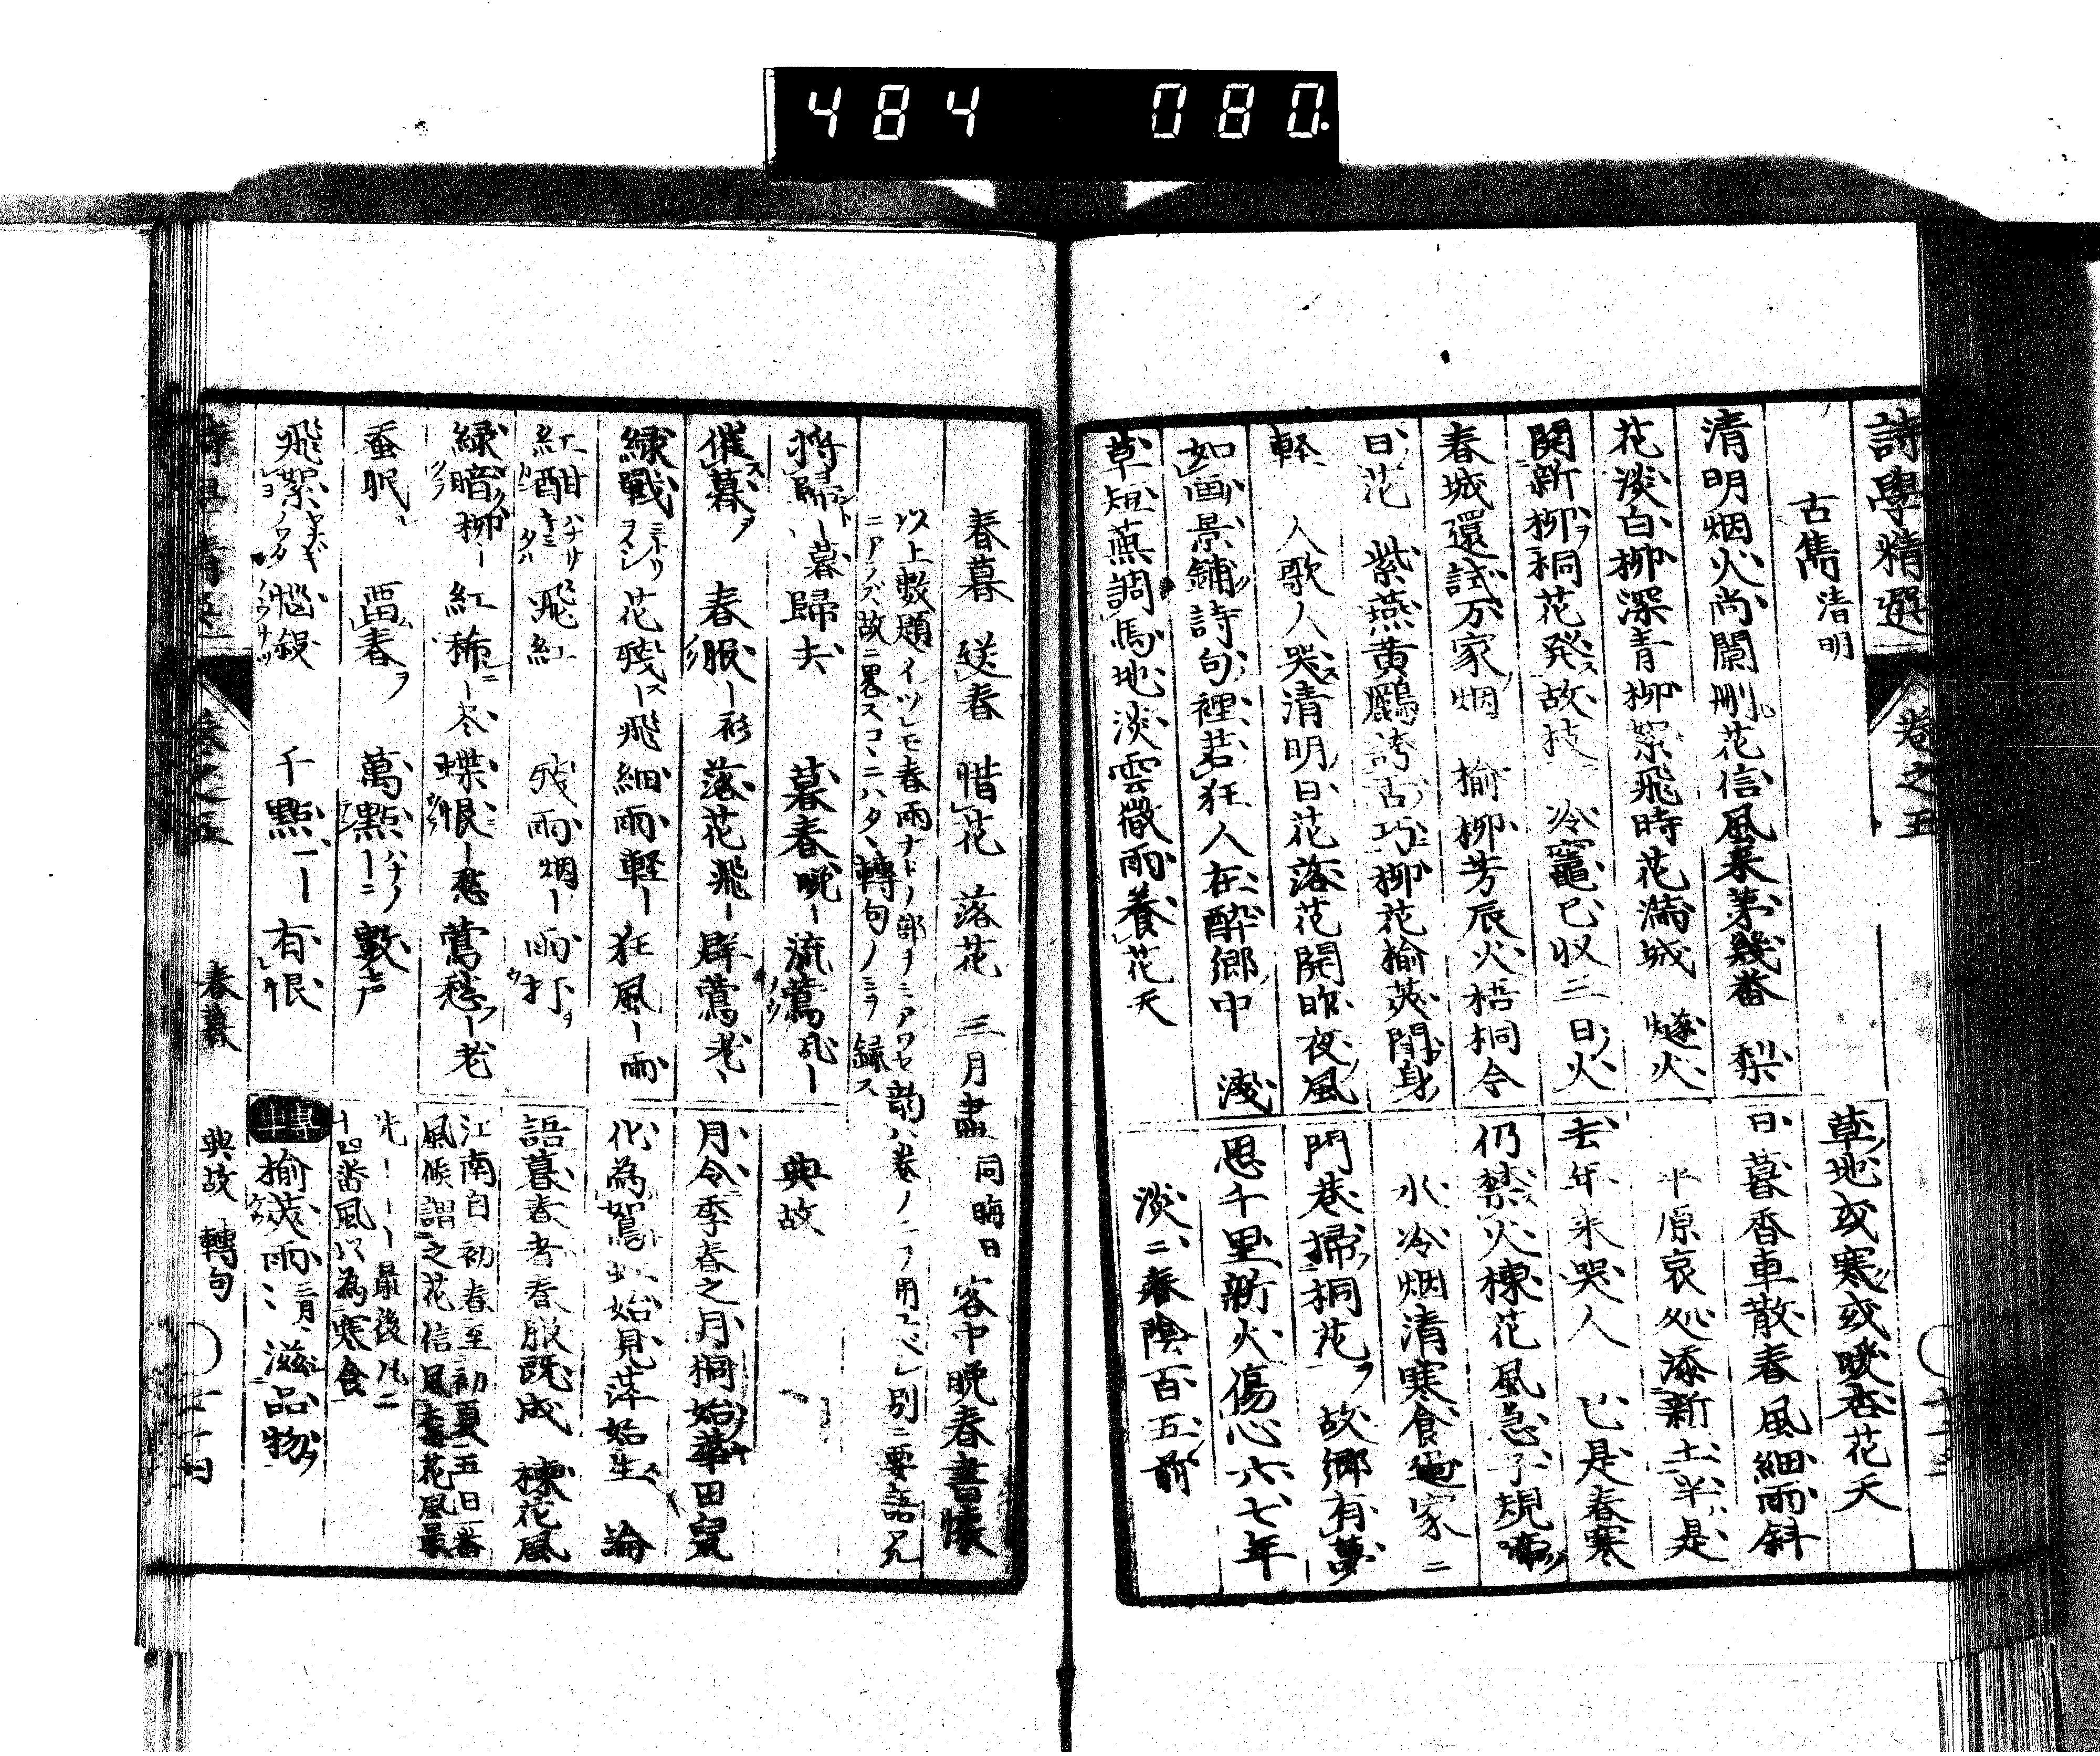 484 080.
詩學精選 卷之五
古雋 清明
清明烟火尚闌刪花信風来第幾番 梨
花淡白柳深青柳絮飛時花満城 燧火
開新柳桐花発故枝 冷竈已収三日火
春城還試万家烟 榆柳芳辰火梧桐今
日花 紫燕黄鸝誇舌巧柳花榆莢鬪身
軽 人歌人哭清明日花落花開昨夜風
如画景鋪詩句裡若狂人在酔郷中 淺
草短蕪調馬地淡雲微雨養花天
草地或寒或暖杏花天
日暮香車散春風細雨斜
平原哀処添新土半是
去年来哭人 已是春寒
仍禁火楝花風急子規啼
水冷烟清寒食家二
門巷掃桐花 故郷有夢
思千里新火傷心六七年
淡二春陰百五前
春暮 送春 惜花 落花 三月盡 同晦日 客中晩春書懐
以上數題イツレモ春雨ナドノ部ヲ
ニアラズ故ニ畧ス 轉句ノミヲ録ス
將歸ー暮歸去 暮春晩ー流鶯乱ー
催暮 春服ー衫 落花飛ー群鶯老ー
緑戰 花殘ー飛 細雨軽ー狂風ー雨
紅酣 飛紅 残雨烟ー雨打
緑暗柳ー紅稀ー冬 蝶恨ー愁 鶯愁ー老
蚕眠 畱春 萬點ー數声
飛絮 惱殺 千點ー 有恨
典故
月令季春之月桐始華田鼠
化為鴽虹始見萍始生 論
語暮春者春服既成 楝花風
江南自初春至初夏五日一番
風候謂之花信風 花風最
先ーーー最後凡二
十四番風以為寒食
榆莢雨 三月 滋品物
卷之五 春暮 典故 轉句